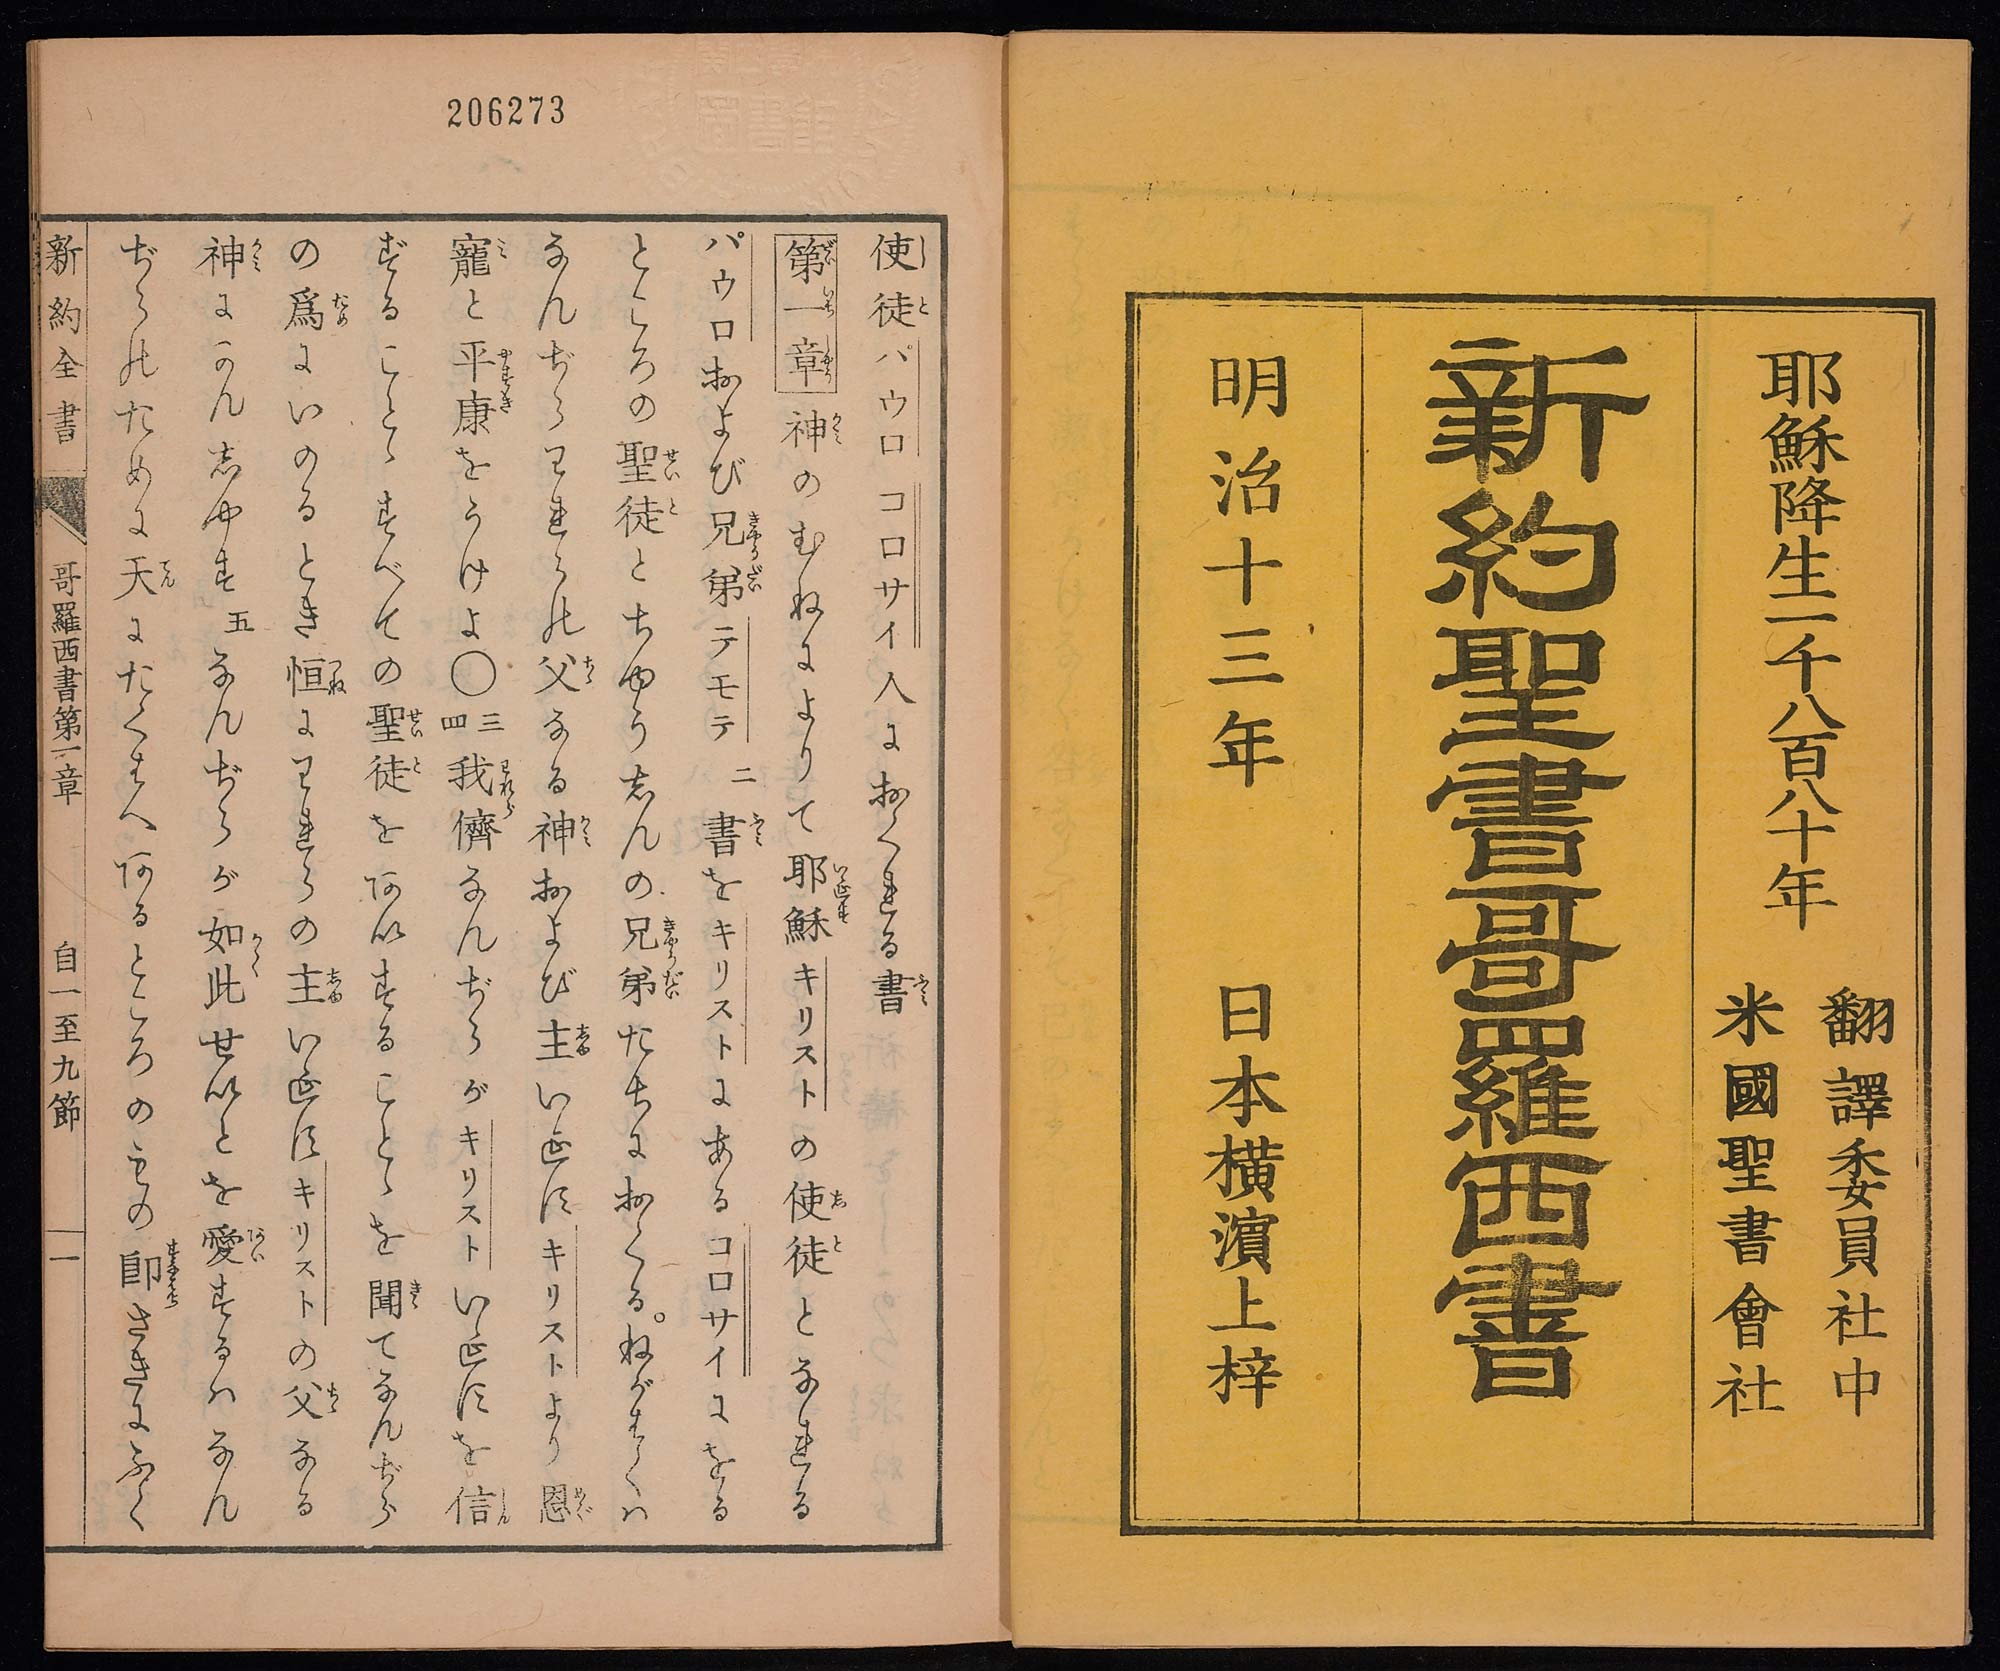 耶穌降生一千八百八十年
翻譯委員社中
米國聖書會社
新約聖書哥羅西書
明治十三年 日本橫濱上梓
206273
使徒パウロコロサイ人におくれる書
第一章 神のむねによりて耶穌キリストの使徒となれる
パウロおよび兄弟テモテ 二 書をキリストにあるコロサイにをる
ところの聖徒とちゆうしんの兄弟たちにおくる。ねがはくハ
なんぢらわれらの父なる神および主いエスキリストより恩
寵と平康をうけよ〇 三 四 我儕なんぢらがキリストいエスを信
ずることゝすべての聖徒をあいすることゝを聞てなんぢら
の爲にいのるとき恒にわれらの主いエスキリストの父なる
神にかんしやす 五 なんぢらが如此せいとを愛するハなん
ぢらのために天にたくはへあるところのもの即さきにふく
新約全書 哥羅西書第一章 自一至九節 一